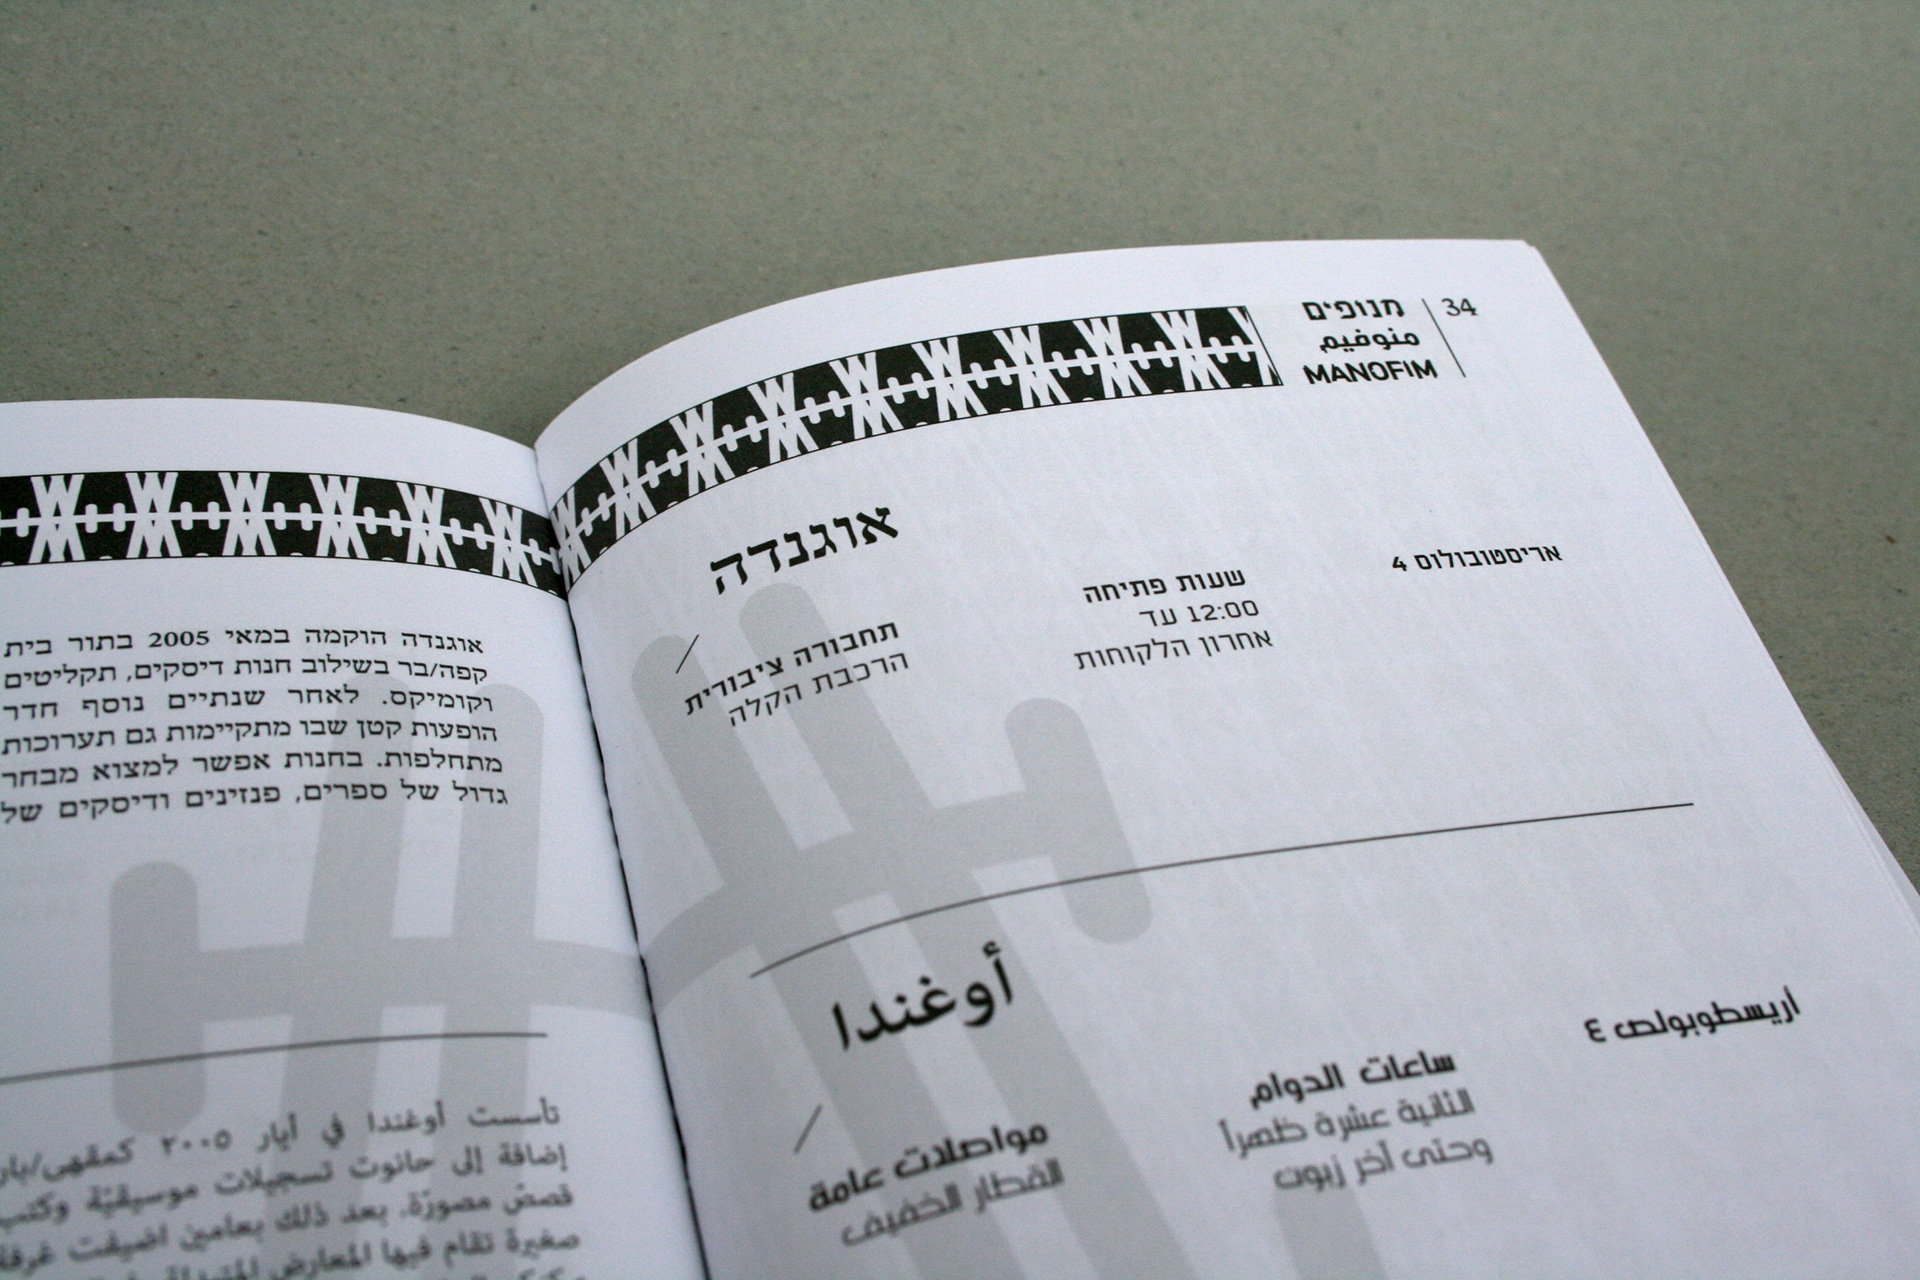 34
מנופים
منوفيم
MANOFIM
אוגנדה
אריסטובולוס 4
שעות פתיחה
12:00 עד
אחרון הלקוחות
תחבורה ציבורית
הרכבת הקלה
أوغندا
أريسطوبولص ٤
ساعات الدوام
الثانية عشرة ظهراً
وحتى آخر زبون
مواصلات عامة
القطار الخفيف
אוגנדה הוקמה במאי 2005 בתור בית
קפה/בר בשילוב חנות דיסקים, תקליטים
וקומיקס. לאחר שנתיים נוסף חדר
הופעות קטן שבו מתקיימות גם תערוכות
מתחלפות. בחנות אפשר למצוא מבחר
גדול של ספרים, פנזינים ודיסקים של
تأسست أوغندا في أيار ٢٠٠٥ كمقهى/بار
إضافة إلى حانوت تسجيلات موسيقيّة وكتب
قصصّ مصورّة. بعد ذلك بعامين اضيفت غرفة
صغيرة تقام فيها المعارض